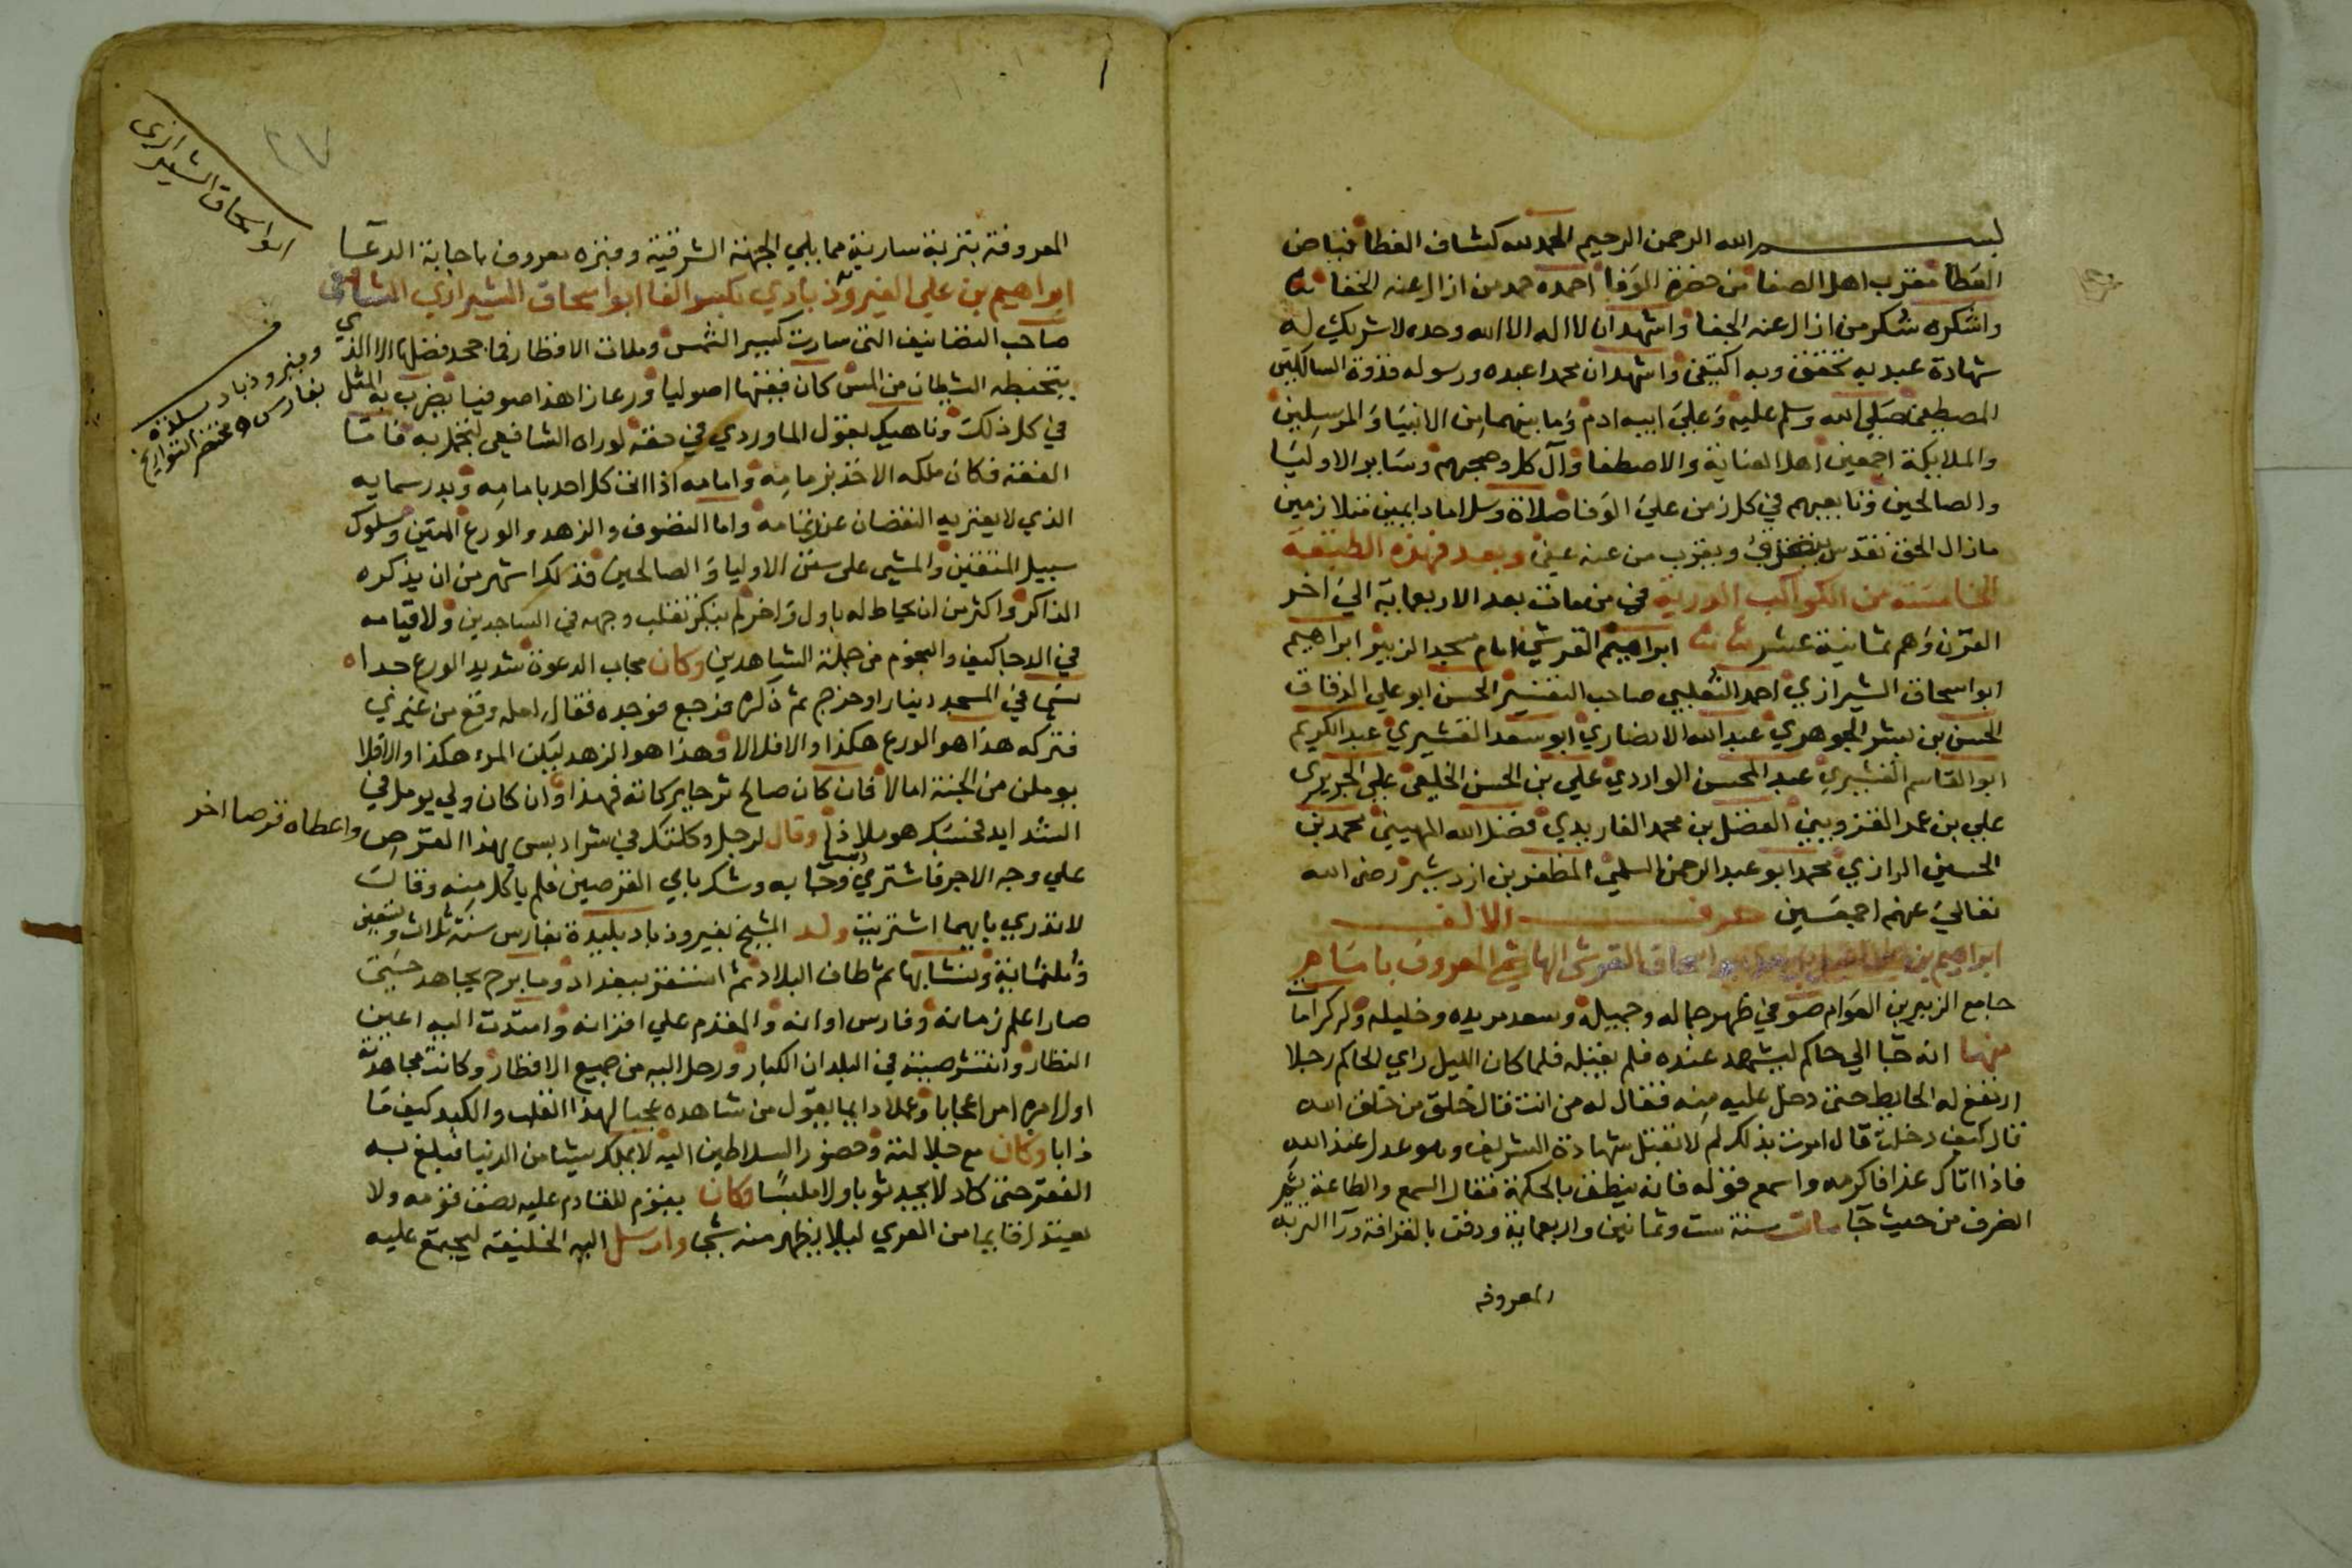 بسم الله الرحمن الرحيم الحمد لله كشاف الغطا فياض
العطا مقرب اهل الصفا من حضرة الوفا احمده حمد من ازال عنه الخفا
واشكره شكر من ازال عنه الجفا واشهد ان لا اله الا الله وحده لا شريك له
شهادة عبد به تحقق وبه اكتفى واشهد ان محمدا عبده ورسوله قدوة السالكين
المصطفى صلى الله وسلم عليه وعلى ابيه ادم وما بينهما من الانبيا والمرسلين
والملايكة اجمعين اهل العناية والاصطفا وآل كل وصحبهم وساير الاوليا
والصالحين وتابعيهم في كل زمن على الوفا صلاة وسلاما دايمين متلازمين
ما زال الحق تقدس ويقرب من عنه عفى وبعد فهذه الطبقة
الخامسة من الكواكب الدرية في من مات بعد الاربعماية الى اخر
القرن وهم ثمانية عشر ابراهيم القرشي امام مسجد الزبير ابراهيم
ابو اسحاق الشيرازي احمد الثعلبي صاحب التفسير الحسن ابو علي الدقاق
الحسن بن بشر الجوهري عبد الله الانصاري ابو سعد القشيري عبد الكريم
ابو القاسم القشيري عبد المحسن الواردي علي بن الحسن الخلعي علي الجريري
علي بن عمر القزويني الفضل بن محمد الفاريدي فضل الله المهيني محمد بن
الحسين الرازي محمد ابو عبد الرحمن السلمي المظفر بن ازدشير رضي الله
تعالى عنهم اجمعين حرف الالف
ابراهيم بن ابو اسحاق القرشي الهاشمي المعروف بامام
جامع الزبير بن العوام صوفي ظهر جماله وجميله وسعد مريده وخليله وله كرامات
منها انه جا الى حاكم ليشهد عنده فلم يقبله فلما كان الليل راي الحاكم رجلا
ارتفع له الحايط حتى دخل عليه منه فقال له من انت قال خلق من خلق الله
قال كيف دخلت قال امرت بذلك لم لا تقبل شهادة الشريف وهو عدل عند الله
فاذا اتاك غدا فاكرمه واسمع قوله فانه ينطق بالحكمة فقال السمع والطاعة ثم
انصرف من حيث جا مات سنة ست وثمانين واربعماية ودفن بالقرافة ورا التربة
المعروفة
المعروفة بتربة سارية مما يلي الجهة الشرقية وقبره معروف باجابة الدعا
ابراهيم بن علي الفيروزبادي بكسر الفا ابو اسحاق الشيرازي الشافعي
صاحب التصانيف التي سارت كسير الشمس وملات الاقطار فما جحد فضلها الا الذي
يتخبطه الشيطان من المس كان فقيها اصوليا ورعا زاهدا صوفيا يضرب به المثل
في كل ذلك وناهيك بقول الماوردي في حقه لو راه الشافعي لتجمل به فاما
الفقه فكان ملكه الاخذ بزمامه وامامه اذا اتى كل احد بامامه وبدر سمايه
الذي لا يعتريه النقصان عند تمامه واما التصوف والزهد والورع المتين وسلوك
سبيل المتقين والمشي على سنن الاوليا والصالحين فذلك اشهر من ان يذكره
الذاكر واكثر من ان يحاط له باول واخر لم ينكر تقلب وجهه في الساجدين ولا قيامه
في الدجا كيف والنجوم من جملة الشاهدين وكان مجاب الدعوة شديد الورع جدا
نسي في المسجد دينارا وخرج ثم ذكره فرجع فوجده فقال لعله وقع من غيري
فتركه هذا هو الورع هكذا والا فلا لا وهذا هو الزهد ليكن المرء هكذا والا فلا
يوملن من الجنة امالا فان كان صالح ترجا بركاته فهذا وان كان ولي يومل في
الشدايد فحسبك هو ملاذا وقال لرجل وكلتك في شرا دبس بهذا القرص واعطاه قرصا اخر
على وجه الاجر فاشترى وجا به وشك باي القرصين فلم ياكل منه وقال
لا تدري بايهما اشتريت ولد الشيخ بفيروزباد بليدة بفارس سنة ثلاث وتسعين
وثلثماية ونشا بها ثم طاف البلاد ثم استقر ببغداد وما برح يجاهد حتى
صار اعلم زمانه وفارس اوانه والمقدم على اقرانه وامتدت اليه اعين
النظار وانتشر صيته في البلدان الكبار ورحل اليه من جميع الاقطار وكانت مجاهدته
اول امره امرا عجابا وعملا دايما يقول من شاهده عجبا لهذا القلب والكبد كيف ما
ذابا وكان مع جلالته وحضور السلاطين اليه لا يملك شيئا من الدنيا فبلغ به
الفقر حتى كاد لا يجد ثوبا ولا ملبسا وكان يقوم للقادم عليه نصف قومه ولا
يعتدل قايما من العري ليلا يظهر منه شيا وارسل اليه الخليفة ليجتمع عليه
ابو اسحاق الشيرازي
وفيروزباد بلدة
بفارس مختصر التواريخ